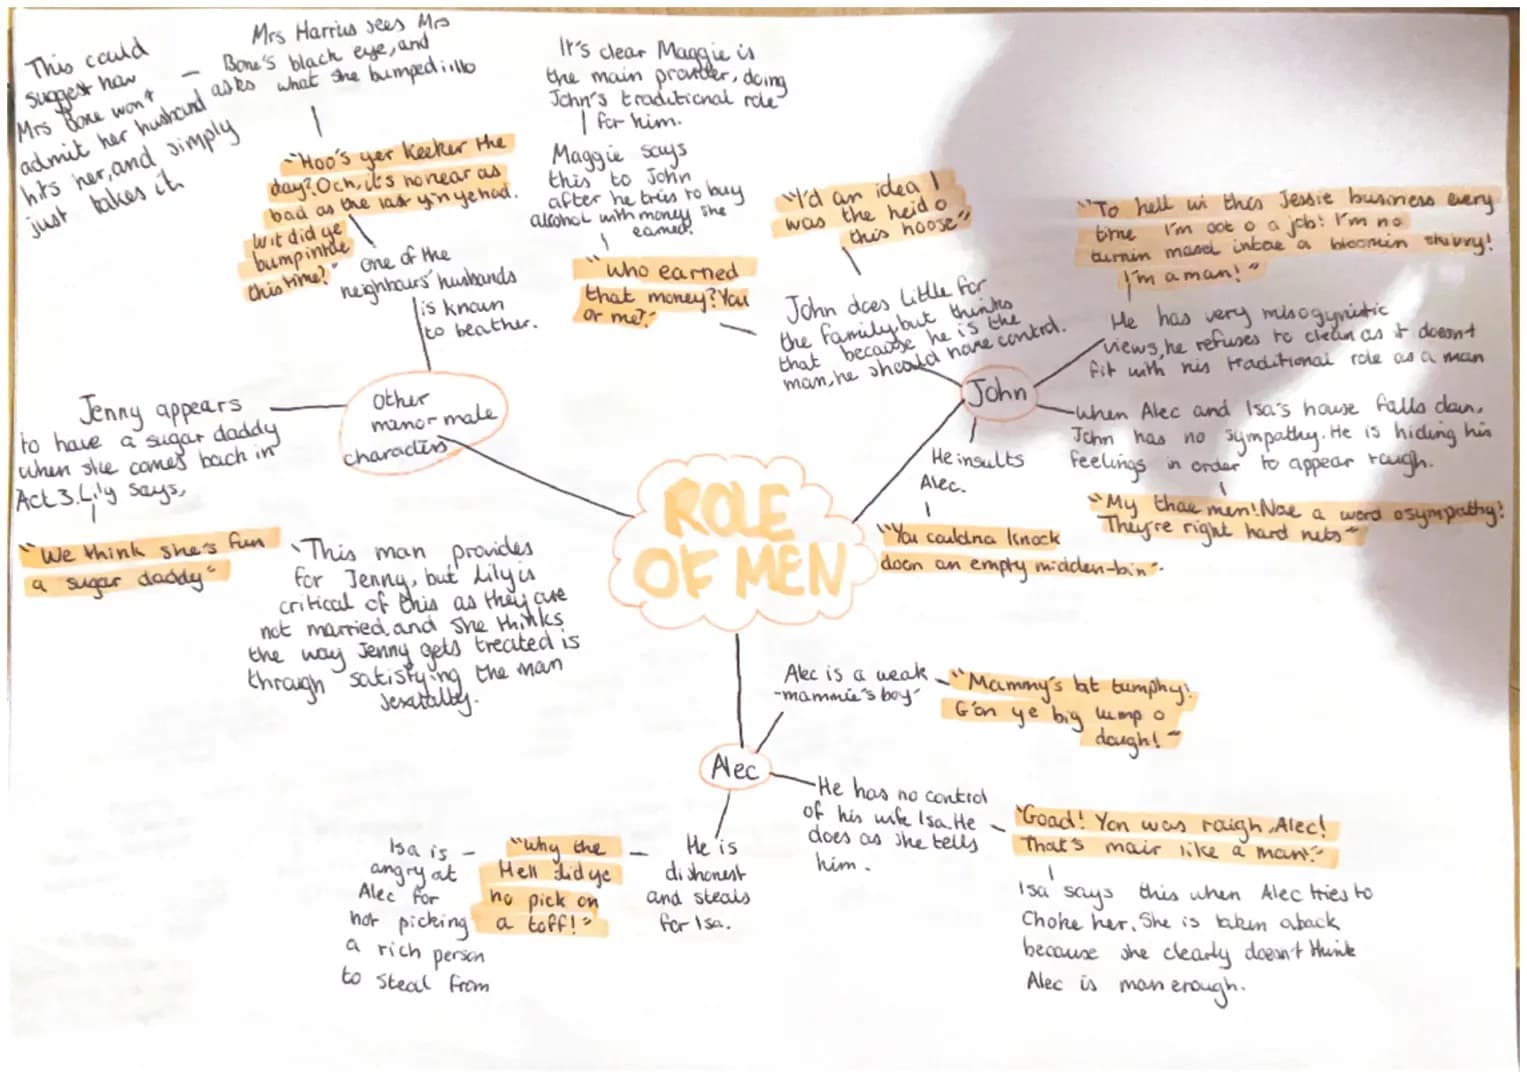 This could
suggest how
Mrs Bone won't
admit her husband
hits her, and simply
just takes it
Mrs Harris sees Mrs
Bone's black eye, and
asks what she bumped into
"Hoo's yer keeker the
day? Och, it's no near as
bad as the last yin ye had.
Wit did ye
bump intae
this time?"
one of the
neighbours' husbands
is known
to beat her.
It's clear Maggie is
the main provider, doing
John's traditional role
for him.
Maggie says
this to John
after he tries to buy
alcohol with money she
earned.
"who earned
that money? You
or me?"
"I'd an idea I
was the heid o
this hoose"
John does little for
the family, but thinks
that because he is the
man, he should have control.
"To hell wi this Jessie business every
time I'm oot o a job! I'm no
turnin masel intae a bloomin skivvy!
I'm a man!"
He has very misogynistic
views, he refuses to clean as it doesn't
fit with his traditional role as a man
John
When Alec and Isa's house falls down,
John has no sympathy. He is hiding his
feelings in order to appear tough.
"My thae men! Nae a word o sympathy!
They're right hard nuts"
He insults
Alec.
"You couldna knock
doon an empty midden-bin".
Other
minor male
characters
Jenny appears
to have a sugar daddy
when she comes back in
Act 3. Lily says,
"We think she's fun
a sugar daddy"
This man provides
for Jenny, but Lily is
critical of this as they are
not married, and she thinks
the way Jenny gets treated is
through satisfying the man
sexually.
ROLE
OF MEN
Alec is a weak
"mammie's boy"
"Mammy's bit tumphy!
G'on ye big lump o
dough!"
Alec
He has no control
of his wife Isa. He
does as she tells
him.
"Goad! Yon was raigh, Alec!
That's mair like a man!"
Isa says this when Alec tries to
choke her. She is taken aback
because she clearly doesn't think
Alec is man enough.
He is
dishonest
and steals
for Isa.
"Why the
Hell did ye
no pick on
a toff!"
Isa is
angry at
Alec for
not picking
a rich person
to steal from